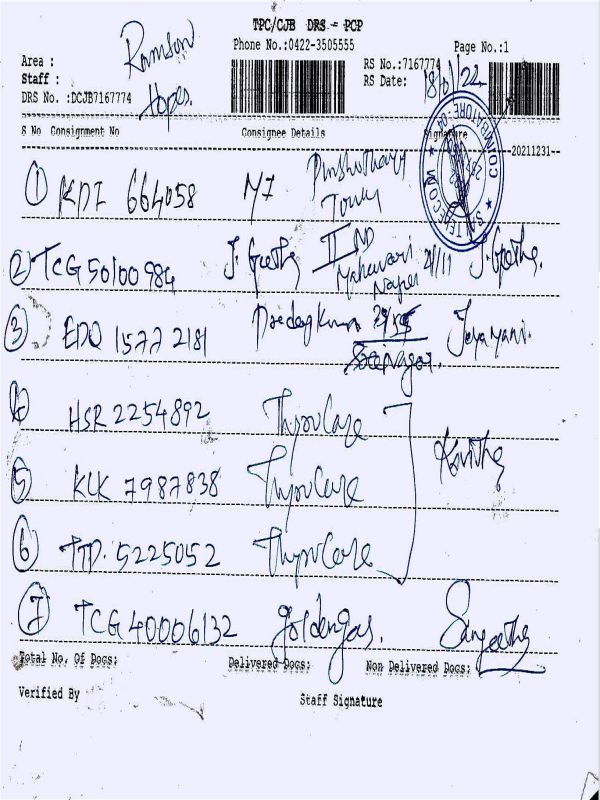 TPC/CJB DRS - PCP
Phone No.:0422-3505555 Page No.:1
Area : Ramson RS No.:7167774
Staff : RS Date: 18/01/22
DRS No. :DCJB7167774 Hopes.
S No Consignment No Consignee Details Signature
--20211231--
COIMBATORE-04
1 KDI 664058 M7
2 TCG 50100984 J. Geetha II ND 21/11 J. Geetha.
Nager
3 EDQ 1577 2181 Jeyamani.
4 HSR 2254892 Thyrocare
Kavitha
5 KLK 7987838 Thyrocare
6 TTD. 5225052 Thyrocare
7 TCG 40006132 goldengas. Sangeetha
Total No. Of Docs: Delivered Docs: Non Delivered Docs:
Verified By Staff Signature